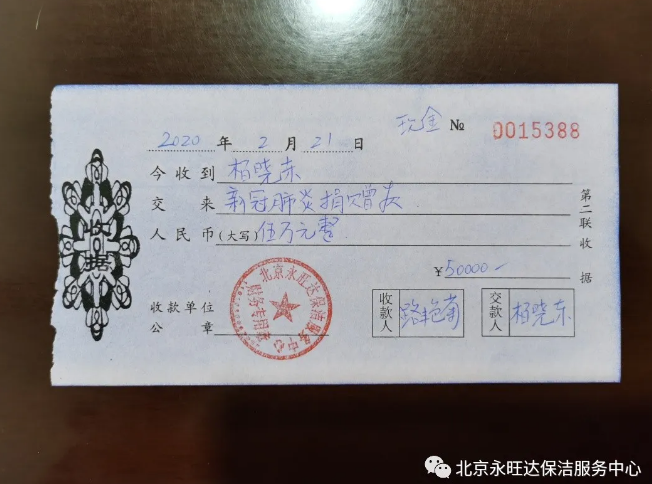 现金 № 0015388
2020 年 2 月 21 日
今收到 柏晓东
交来 新冠肺炎捐赠款
人民币(大写) 伍万元整
¥50000-
收款单位
公章
北京永旺达保洁服务中心
财务专用章
收款人 路艳菊
交款人 柏晓东
第二联收据
收据
北京永旺达保洁服务中心